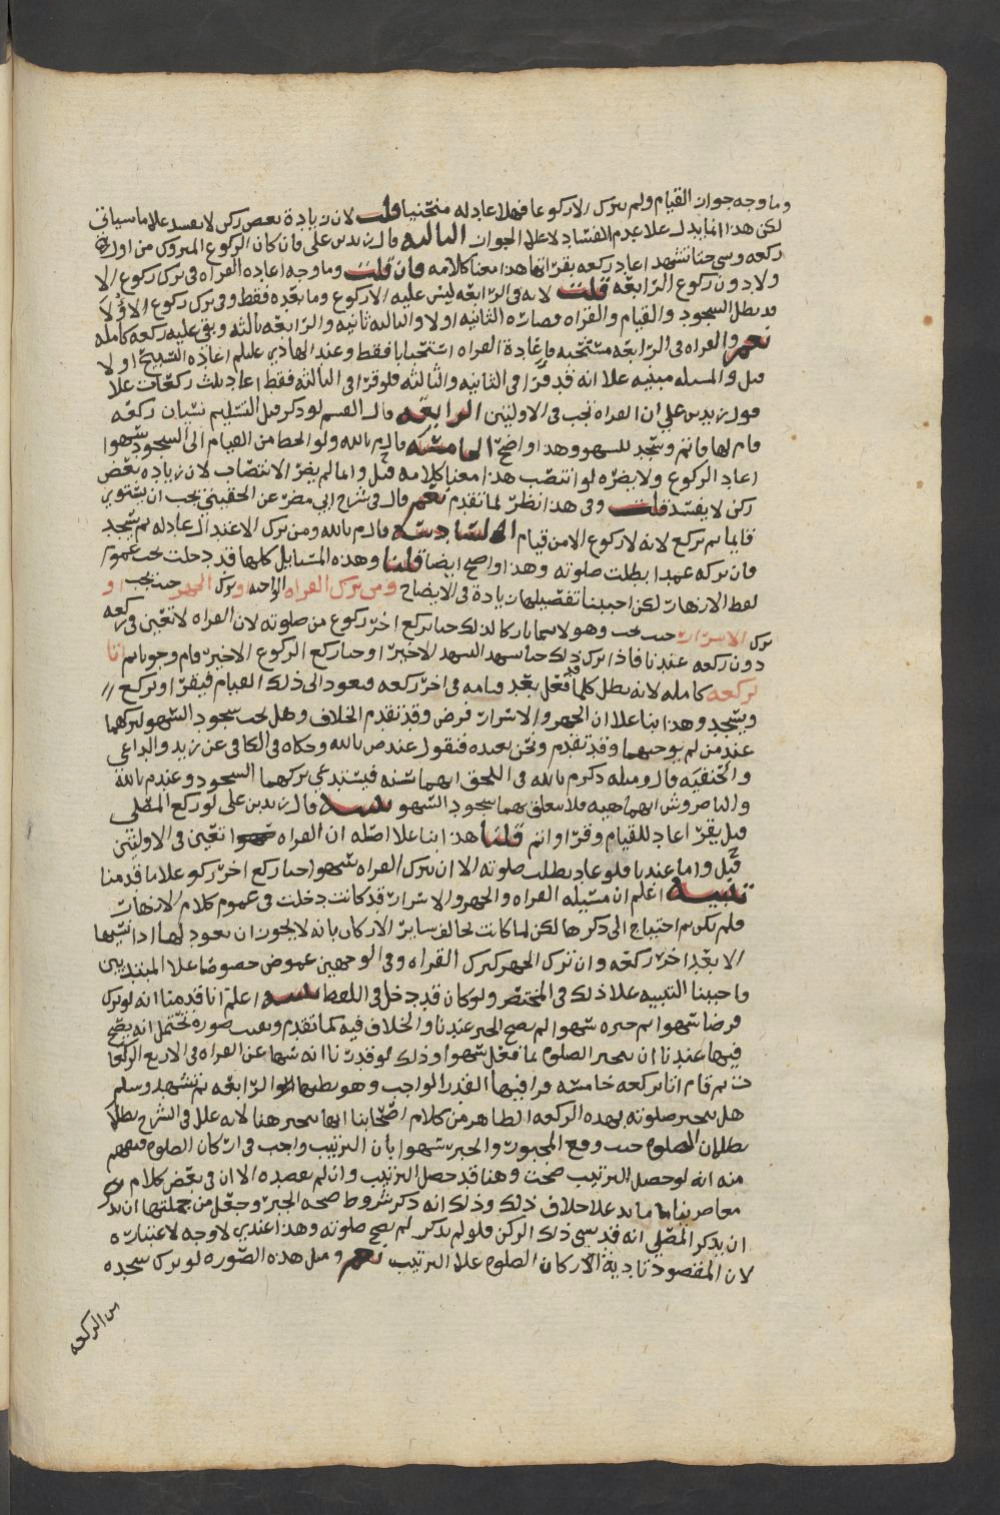 وما وجه جواز القيام ولم يترك الا ركوعا فهلا عاد له منحنيا قلت لان زيادة بعض ركن لا يفسد علا ما سياتي
لكن هذا انما يدل علا عدم الفساد لا علا الجواز الثالثه قال زيد بن علي فان كان الركوع المتروك من اول
ركعه ونسي حتا تشهد اعاد ركعه يقرا فيها هذا معنا كلامه فان قلت وما وجه اعاده القراه في ترك ركوع الا
ولا دون ركوع الرابعه قلت لانه في الرابعه ليس عليه الا ركوع وما بعده فقط وفي ترك ركوع الاولا
قد بطل السجود والقيام والقراه فصاره الثانيه اولا والثالثه ثانيه والرابعه ثالثه وبقي عليه ركعه كامله
نعم والقراه في الرابعه مستحبه فاعادة القراه استحبابا فقط وعند الهادي عليلم اعاده التسبيح اولا
قيل والمسله مبنيه علا انه قد قرا في الثانيه والثالثه فلو قرا في الثالثه فقط اعاد ثلث ركعات علا
قول زيد بن علي ان القراه تجب في الاوليتين الرابعه قال القسم لو ذكر قبل التسليم نسيان ركعه
قام لها فاتم وسجد للسهو وهذا واضح الخامسه قال م بالله ولو انحط من القيام الى السجود سهوا
اعاد الركوع ولا يضره لو انتصب هذا معنا كلامه قيل وانما لم يضر الانتصاب لان زياده بعض
ركن لا يفسد قلت وفي هذا نظر لما تقدم نعم قال في شرح ابي مضر عن الحقيني يجب ان يستوي
قايما ثم يركع لانه لا ركوع الا من قيام السادسه قال م بالله ومن ترك الاعتدال عاد له ثم سجد
فان تركه عمدا بطلت صلوته وهذا واضح ايضا قلنا وهذه المسايل كلها قد دخلت تحت عموم
لفظ الازهار لكن احببنا تفصيلها زيادة في الايضاح ومن ترك القراه الواجبه او ترك الجهر حيث يجب او
ترك الاسرار حيث يجب وهو لا سيما تاركا لذلك حتا يركع اخر ركوع من صلوته لان القراه لا تتعين في ركعه
دون ركعه عندنا فاذا ترك ذلك حتا تشهد التشهد الاخير او حتا ركع الركوع الاخير قام وجوبا ثم اتا
بركعه كامله لانه بطل كلما فعل بعد قيامه في اخر ركعه فيعود الى ذلك القيام فيقرا ويركع
ويسجد وهذا بنا علا ان الجهر والاسرار فرض وقد تقدم الخلاف وهل يجب سجود السهو لتركهما
عند من لم يوجبهما وقد تقدم ونحن نعيده فنقول عند ص بالله وحكاه في الكافي عن زيد والداعي
والحنفيه قال ومثله ذكر م بالله في الملحق انهما سنه فيستدعي تركهما السجود وعند م بالله
والناصر وش انهما هيه فلا يتعلق بهما سجود السهو تنبيه قال زيد بن علي لو ركع المصلي
قبل يقرا عاد للقيام وقرا واتم قلنا هذا بنا علا اصله ان القراه تتعين في الاوليتين
قيل واما عندنا فلو عاد بطلت صلوته الا ان يترك القراه سهوا حتا ركع اخر ركوع علا ما قدمنا
تنبيه اعلم ان مسيله القراه والجهر والاسرار قد كانت دخلت في عموم كلام الازهار
فلم يكن ثم احتياج الى ذكرها لكن لما كانت تخالف ساير الاركان بانه لا يجوز ان يعود لها اذا نسيها
الا بعد اخر ركعه وان ترك الجهر كترك القراه وفي الوجهين غموض خصوصا علا المبتديين
واحببنا التنبيه علا ذلك في المختصر ولو كان قد دخل في اللفظ تنبيه اعلم انا قدمنا انه لو ترك
فرضا سهوا ثم جبره سهوا لم يصح الجبر عندنا والخلاف فيه كما تقدم وبقيت صوره تحتمل انه يصح
فيها عندنا ان تنجبر الصلوه بما فعل سهوا وذلك لو قدرنا انه سها عن القراه في الاربع الركعا
ت ثم قام اتا بركعه خامسه قرا فيها القدر الواجب وهو يظنها الرابعه ثم تشهد وسلم
هل تنجبر صلوته بهذه الركعه الظاهر من كلام اصحابنا انها تنجبر هنا لانه علل في الشرح بطلا
بطلان الصلوه حيث وقع المجبور والجبر سهوا بان الترتيب واجب في اركان الصلوه فيفهم
منه انه لو حصل الترتيب صحت وهنا قد حصل الترتيب وان لم يقصده الا ان في بعض كلام
معاصرينا ما يدل علا خلاف ذلك وذلك انه ذكر شروط صحه الجبر وجعل من جملتها
ان يذكر المصلي انه قد نسي ذلك الركن فلو لم يذكر لم يصح صلوته وهذا عندي لا وجه لاعتباره
لان المقصود تادية اركان الصلوه علا الترتيب نعم ومثل هذه الصوره لو ترك سجده
من الركعه